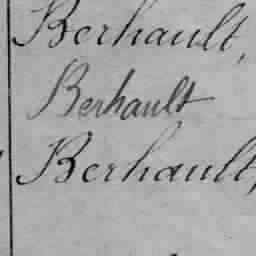 Berhault,
Berhault
Berhault,